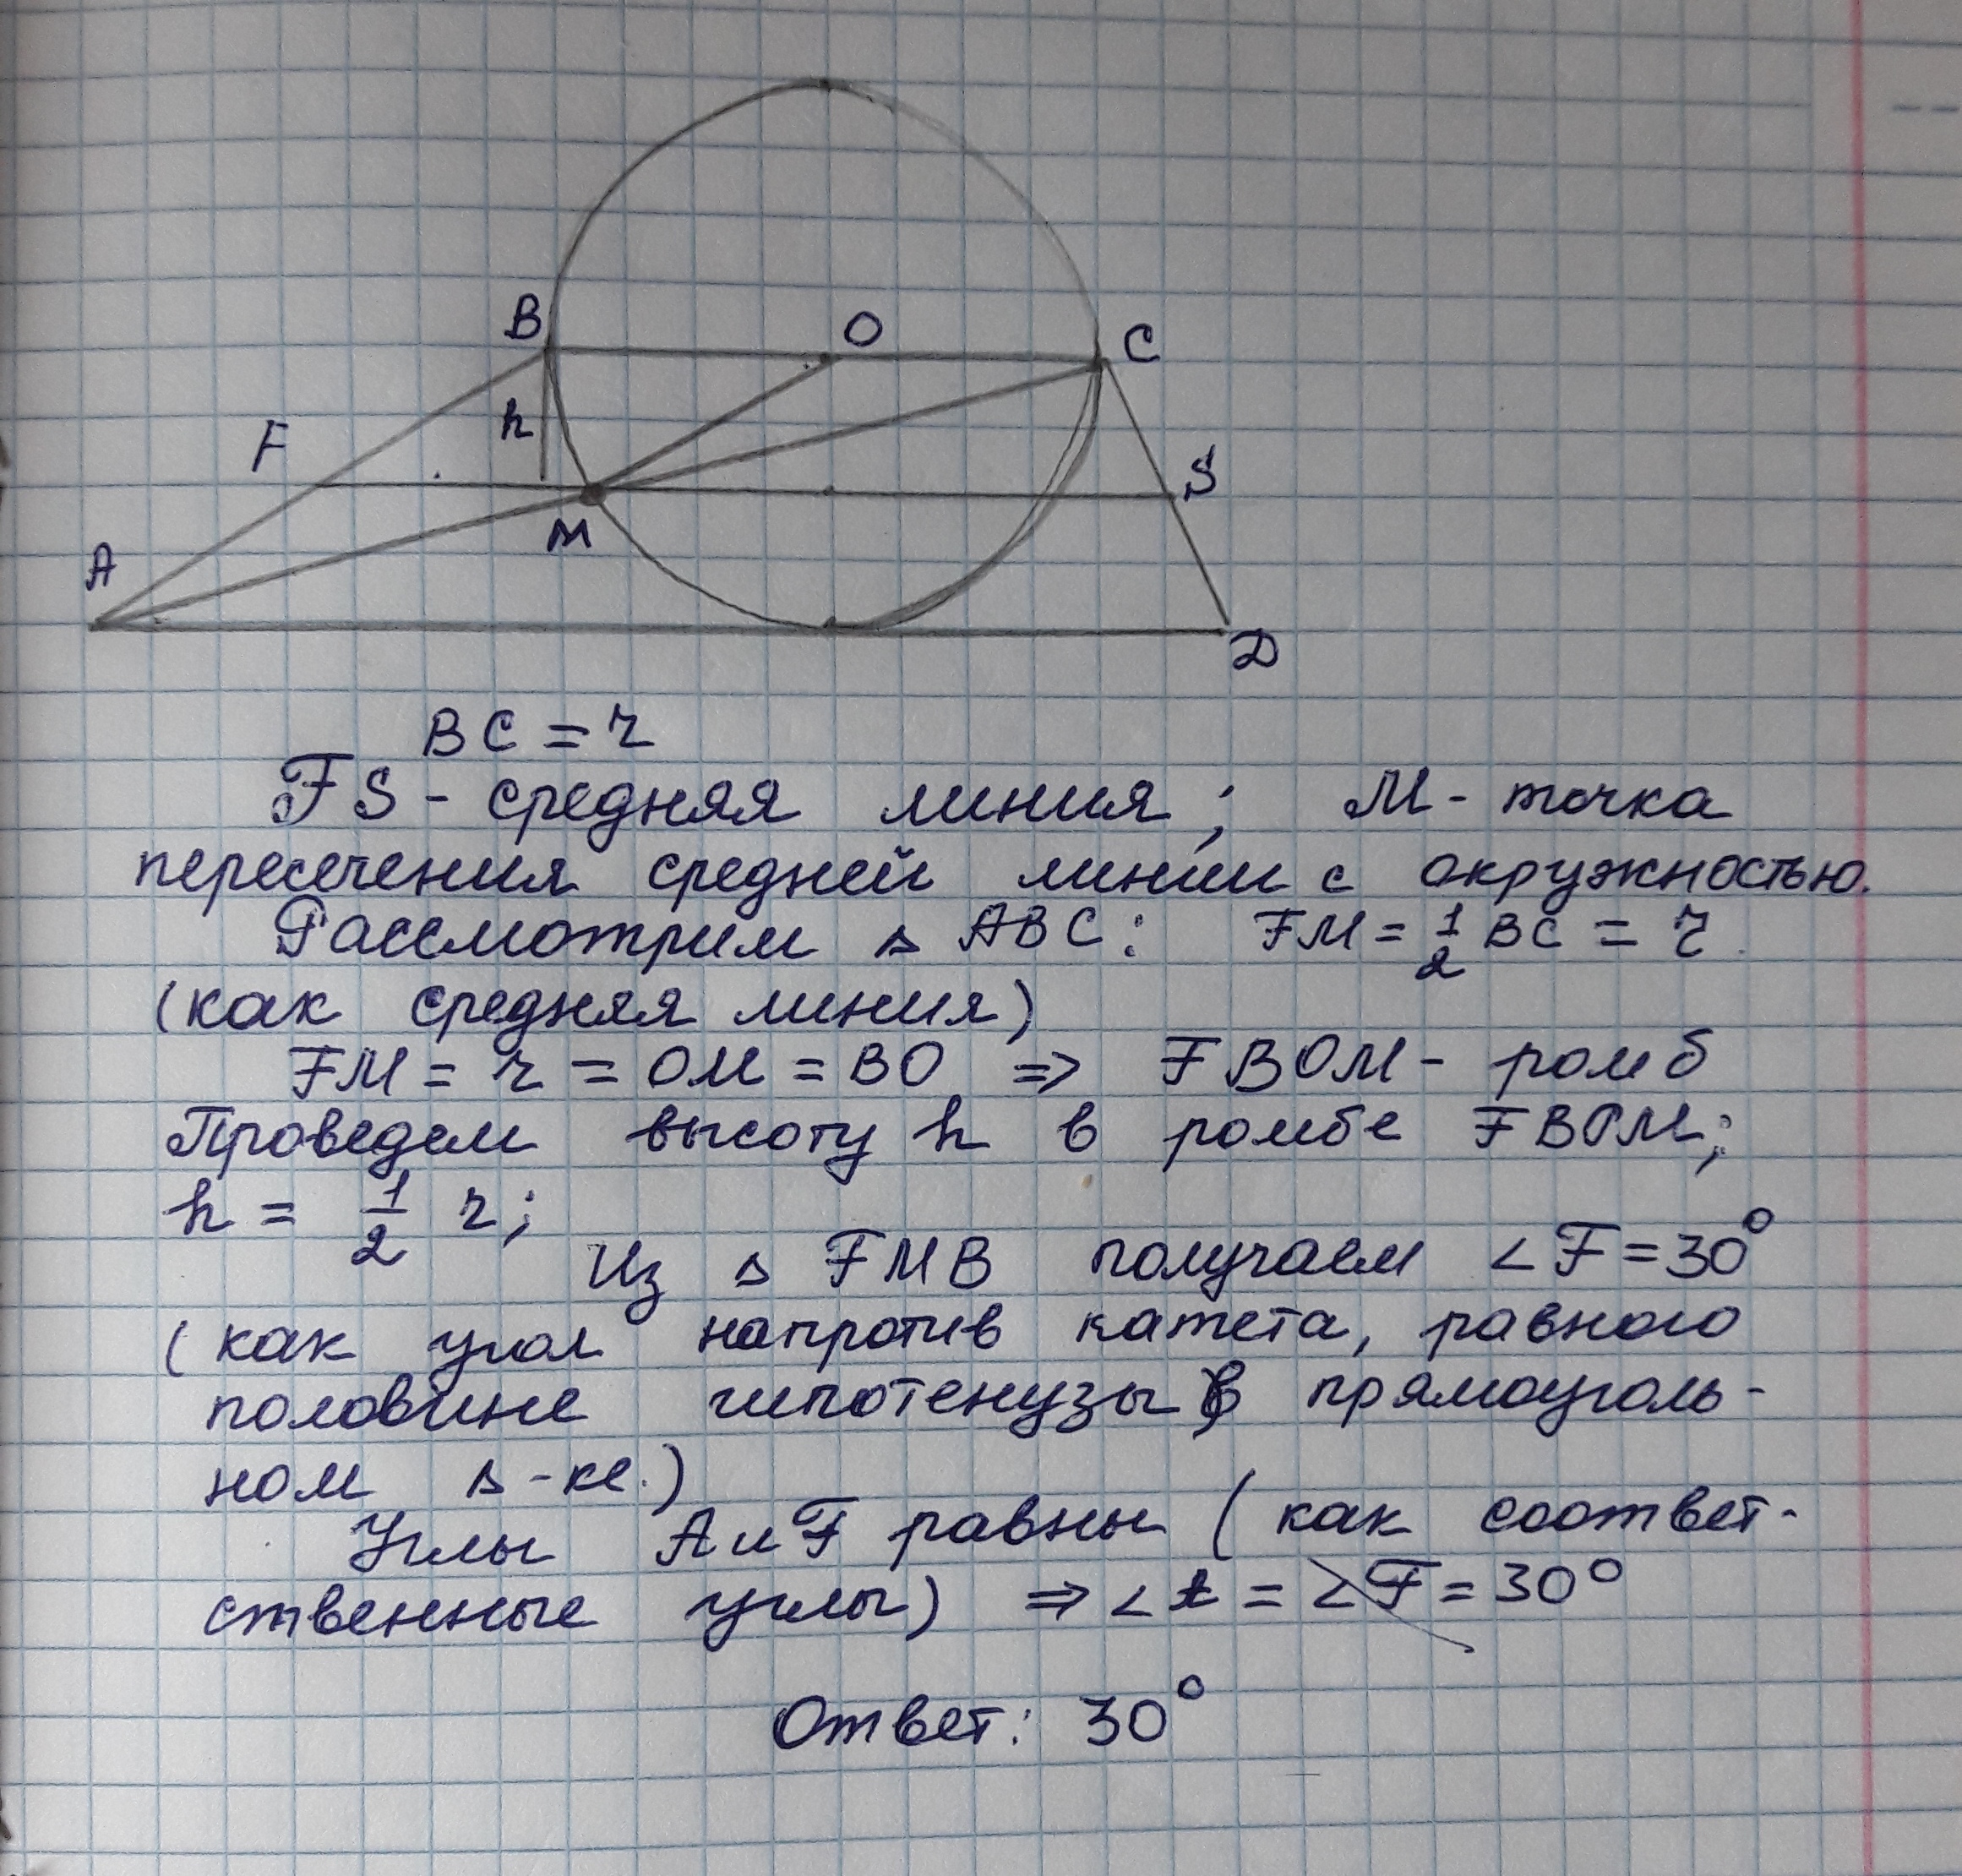 B
O
C
h
F
S
M
A
D
BC = r
FS - средняя линия; M - точка
пересечения средней линии с окружностью.
Рассмотрим Δ ABC: FM = 1/2 BC = r.
(как средняя линия)
FM = r = OM = BO => FBOM - ромб
Проведем высоту h в ромбе FBOM;
h = 1/2 r;
Из Δ FMB получаем ∠F = 30°
(как угол напротив катета, равного
половине гипотенузы в прямоуголь-
ном Δ-ке.)
Углы A и F равны (как соответ-
ственные углы) => ∠A = ∠F = 30°
Ответ: 30°